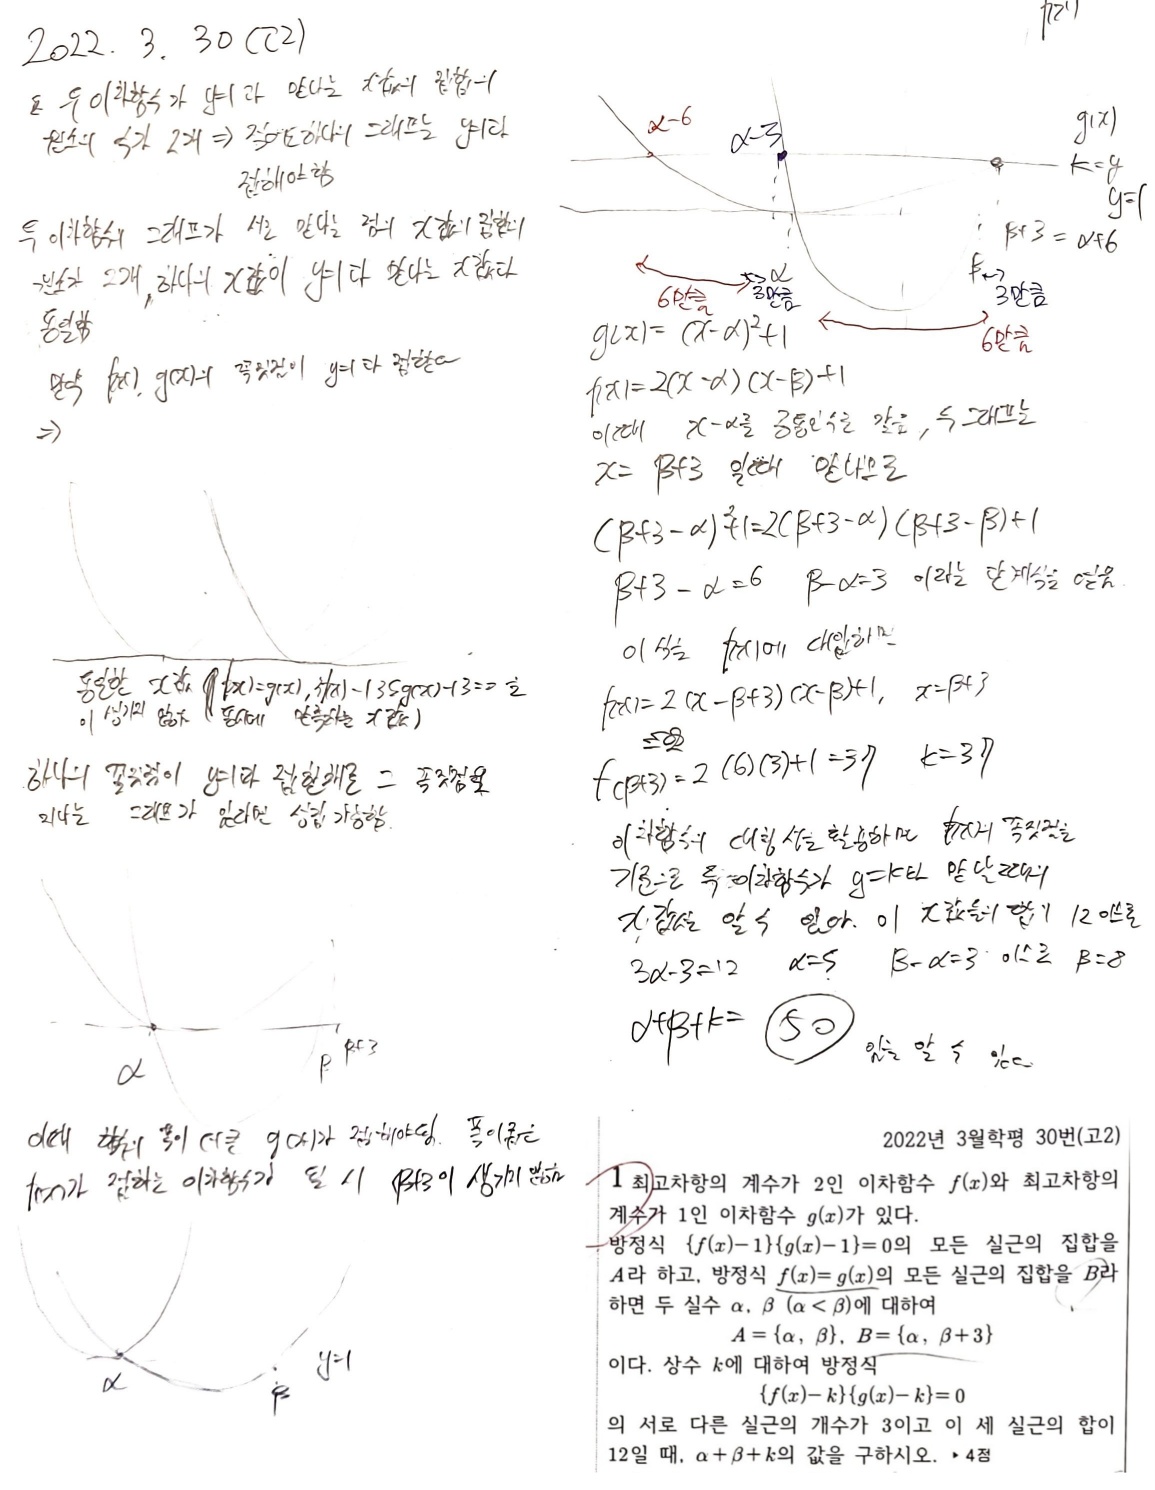 2022. 3. 30 (고2)
두 이차함수가 y=1과 만나는 x값의 집합의
원소의 수가 2개 ⇒ 적어도 하나의 그래프는 y=1과
접해야함
두 이차함수의 그래프가 서로 만나는 점의 x값의 집합의
원소가 2개, 하나의 x값이 y=1과 만나는 x값과
동일함
만약 f(x), g(x)의 꼭짓점이 y=1과 접한다
⇒
동일한 x값 (f(x)=g(x), {f(x)-1}{g(x)-1}=0을
이 생기지 않아 동시에 만족하는 x값)
하나의 꼭짓점이 y=1과 접한채로 그 꼭짓점을
지나는 그래프가 있다면 성립 가능함.
α
β
β+3
이때 함수의 폭이 더 큰 g(x)가 접해야됨. 폭이 좁은
f(x)가 접하는 이차함수가 될 시 β+3이 생기지 않음
α
β
y=1
f(x)
α-6
α-3
g(x)
k=y
y=1
β+3 = α+6
α
β
6만큼
3만큼
3만큼
6만큼
g(x)= (x-α)²+1
f(x)=2(x-α)(x-β)+1
이때 x-α를 공통인수를 갖음, 두 그래프는
x= β+3 일때 만나므로
(β+3-α)²+1=2(β+3-α)(β+3-β)+1
β+3-α=6 β-α=3 이라는 관계식을 얻음.
이 식을 f(x)에 대입하면
f(x)=2(x-β+3)(x-β)+1, x=β+3
f(β+3)=2(6)(3)+1=37 k=37
이차함수의 대칭성을 활용하면 f(x)의 꼭짓점을
기준으로 두 이차함수가 y=k와 만날때의
x값을 알 수 있어. 이 x값들의 합이 12이므로
3α-3=12 α=5 β-α=3 이므로 β=8
α+β+k= 50 임을 알 수 있다
2022년 3월학평 30번(고2)
1 최고차항의 계수가 2인 이차함수 f(x)와 최고차항의
계수가 1인 이차함수 g(x)가 있다.
방정식 {f(x)-1}{g(x)-1}=0의 모든 실근의 집합을
A라 하고, 방정식 f(x)=g(x)의 모든 실근의 집합을 B라
하면 두 실수 α, β (α<β)에 대하여
A={α, β}, B={α, β+3}
이다. 상수 k에 대하여 방정식
{f(x)-k}{g(x)-k}=0
의 서로 다른 실근의 개수가 3이고 이 세 실근의 합이
12일 때, α+β+k의 값을 구하시오. ▸ 4점